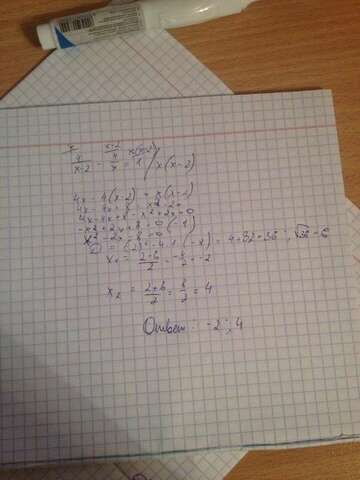 x   x-2   x(x-2)
4/(x-2) - 4/x = 1 / x(x-2)
4x - 4(x-2) = x(x-2)
4x - 4x + 8 = x² - 2x
4x - 4x + 8 - x² + 2x = 0
-x² + 2x + 8 = 0 (-1)
x² - 2x - 8 = 0
D = (2)² - 4 · 1 · (-8) = 4 + 32 = 36; √36 = 6
x₁ = (2-6)/2 = -4/2 = -2
x₂ = (2+6)/2 = 8/2 = 4
Ответ: -2; 4